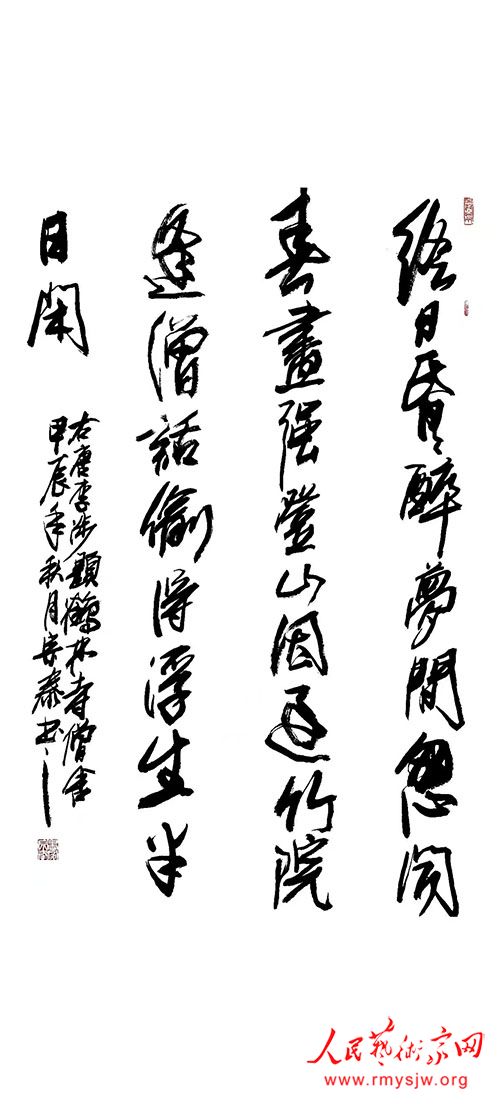 終日昏々醉夢間忽聞
春盡强登山因過竹院
逢僧話偷得浮生半
日閑
右唐李涉題鶴林寺僧舍
甲辰年秋月安泰书
人民藝術家网
www.rmysjw.org